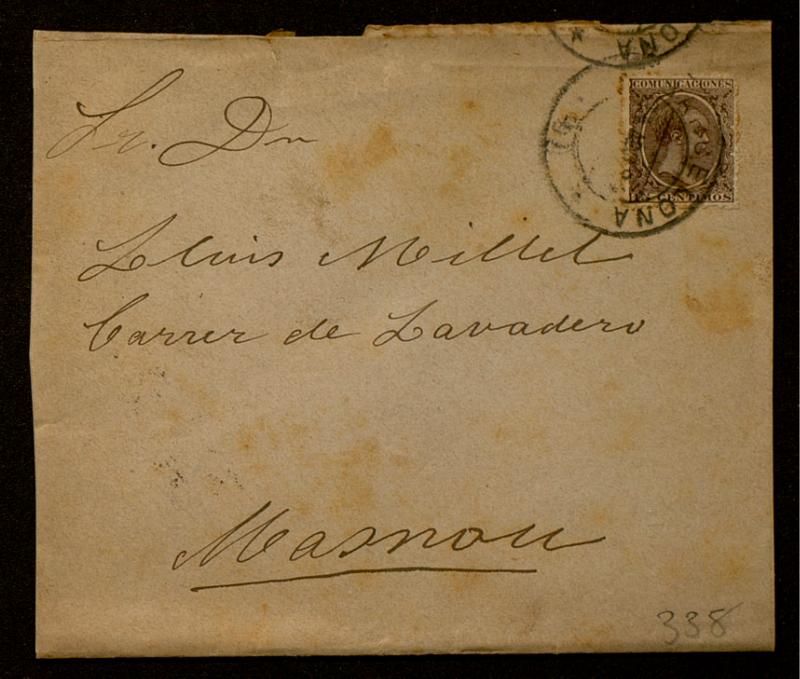 ONA
COMUNICACIONES
CENTIMOS
ONA
Sr. Dn
Lluis Millet
Carrer de Lavadero
Masnou
338